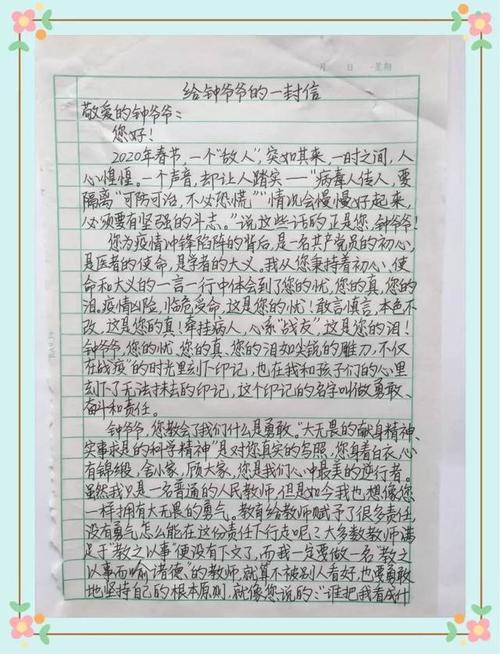 月 日 星期
给钟爷爷的一封信
敬爱的钟爷爷:
您好!
2020年春节,一个"敌人",突如其来,一时之间,人
心惶惶。一个声音,却让人踏实——"病毒人传人,要
隔离""可防可治,不必恐慌""情况会慢慢好起来,
必须要有坚强的斗志。"说这些话的正是您,钟爷爷!
您为疫情冲锋陷阵的背后,是一名共产党员的初心,
是医者的使命,是学者的大义。我从您秉持着初心、使
命和大义的一言一行中体会到了您的忧,您的真,您的
泪。疫情凶险,临危受命,这是您的忧!敢言慎言,本色不
改,这是您的真!牵挂病人,心系"战友",这是您的泪!
钟爷爷,您的忧、您的真、您的泪如尖锐的雕刀,不仅
在"战疫"的时光里刻下印记,也在我和孩子们的心里
刻下了无法抹去的印记,这个印记的名字叫做勇敢、
奋斗和责任。
钟爷爷,您教会了我们什么是勇敢。"大无畏的献身精神、
实事求是的科学精神"是对您真实的写照,您身着白衣,心
有锦缎,舍小家,顾大家,您是我们心中最美的逆行者。
虽然我只是一名普通的人民教师,但是如今我也想像您
一样拥有大无畏的勇气。教育给教师赋予了很多责任,
没有勇气怎么能在这份责任下行走呢?大多数教师满
足于"教之以事"便没有下文了,而我一定要做一名"教之
以事而喻诸德"的教师,就算不被别人看好,也要勇敢
地坚持自己的根本原则,就像您说的:"谁把我看成什